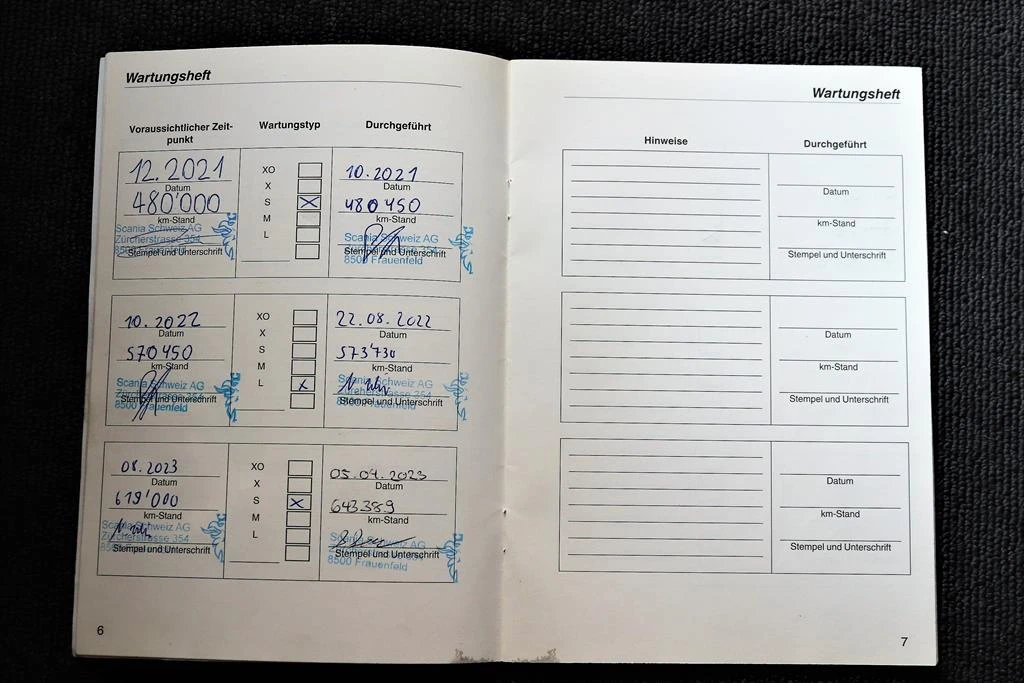 Wartungsheft
Voraussichtlicher Zeit-
punkt
Wartungstyp
Durchgeführt
12.2021
Datum
480'000
km-Stand
Scania Schweiz AG
Zürcherstrasse 354
8500 Frauenfeld
Stempel und Unterschrift
XO
X
S X
M
L
10.2021
Datum
480450
km-Stand
Scania Schweiz AG
Zürcherstrasse 354
Stempel und Unterschrift
8500 Frauenfeld
10.2022
Datum
570450
km-Stand
Scania Schweiz AG
Zürcherstrasse 354
Stempel und Unterschrift
8500 Frauenfeld
XO
X
S
M
L X
22.08.2022
Datum
573'730
km-Stand
Scania Schweiz AG
Zürcherstrasse 354
Stempel und Unterschrift
8500 Frauenfeld
08.2023
Datum
619'000
km-Stand
Scania Schweiz AG
Zürcherstrasse 354
Stempel und Unterschrift
8500 Frauenfeld
XO
X
S X
M
L
05.04.2023
Datum
643389
km-Stand
Scania Schweiz AG
Stempel und Unterschrift
8500 Frauenfeld
6
Wartungsheft
Hinweise
Durchgeführt
Datum
km-Stand
Stempel und Unterschrift
Datum
km-Stand
Stempel und Unterschrift
Datum
km-Stand
Stempel und Unterschrift
7